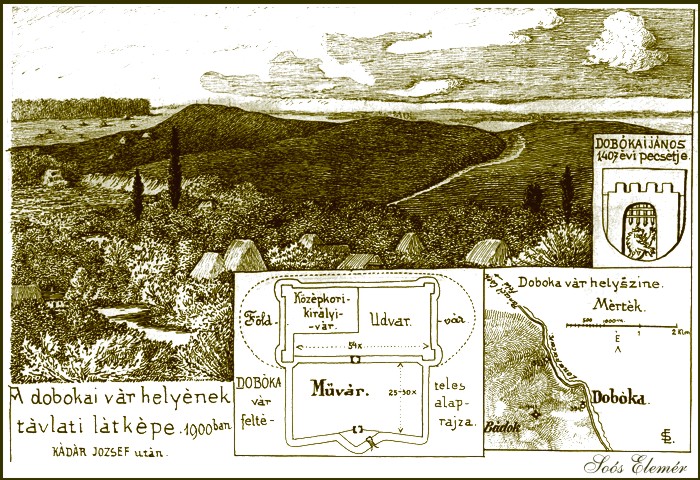 DOBÓKAI JÁNOS
1407 évi pecsétje.
A dobokai vár helyének
távlati látképe. 1900 ban
KÁDÁR JOZSEF után.
Középkori-
királyi-
vár.
Udvar.
Föld-
vár
54x
DOBÓKA
vár
felté-
Művár.
25-30x
teles
alap-
rajza.
Doboka vár helyszine.
Mèrtèk.
500
1000 m.
1
2 Km.
É
Dobóka.
Bádok
Soós Elemér